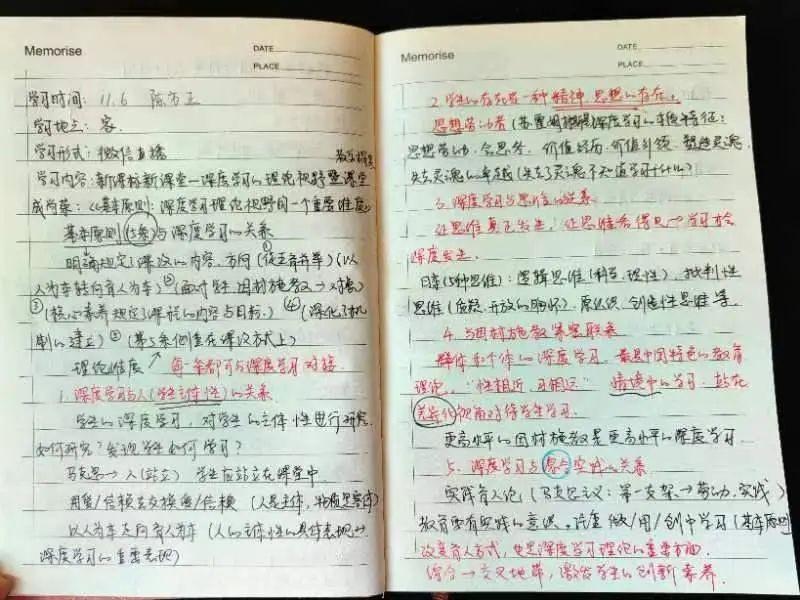 Memorise
DATE
PLACE
学习时间: 11.6
学习地点: 家.
学习形式: 微信直播
学习内容: 新课标新课堂—深度学习的理论视野暨课堂
成尚荣:《基本原则: 深度学习理论视野间一个重要维度》
基本原则(5条)与深度学习的关系
明确规定了课改的内容、方向①(五育并举)(以
人为本转向育人为本)②(面对学生 因材施教→对象)
③(核心素养规定了课程的内容与目标.)④(深化了机
制的建立)⑤(第5条侧重在课改方式上)
理论维度 每一条都可与深度学习对接.
1. 深度学习与人(学生主体性)的关系.
学生的深度学习, 对学生的主体性进行研究.
如何研究?发现学生如何学习?
马克思→人(站立) 学生应站立在课堂中
用爱/信赖去交换爱/信赖 (人是主体, 物质是客体)
以人为本走向育人为本 (人的主体性的具体表现
深度学习的重要表现)
Memorise
DATE
PLACE
2. 学生的存在是一种精神、思想的存在.
思想劳动者 (苏霍姆林斯基深度学习的本质特征:
思想劳动、会思考、价值引领、塑造灵魂.
失去灵魂的卓越 (失去了灵魂不知道学习干什么?)
3. 深度学习与思维的关系
让思维真正发生, 让思维看得见→学习才会
深度发生.
日本(5种思维): 逻辑思维(科学、理性)、批判性
思维(质疑、开放的胸怀)、创造性思维等.
4. 与因材施教紧密联系
群体和个体的深度学习. 最是中国特色的教育
理论. "性相近, 习相远" 情境中的学习. 站在
差异化视角对待学生学习.
更高水平的因材施教是更高水平的深度学习.
5. 深度学习与综合实践的关系
实践育人论 (马克思主义: 第一支架→劳动、实践)
教育要有实践的意识. 注重做/用/创中学习(基本原则
改变育人方式, 也是深度学习理论的重要方面.
综合→交叉地带, 激发学生的创新素养.